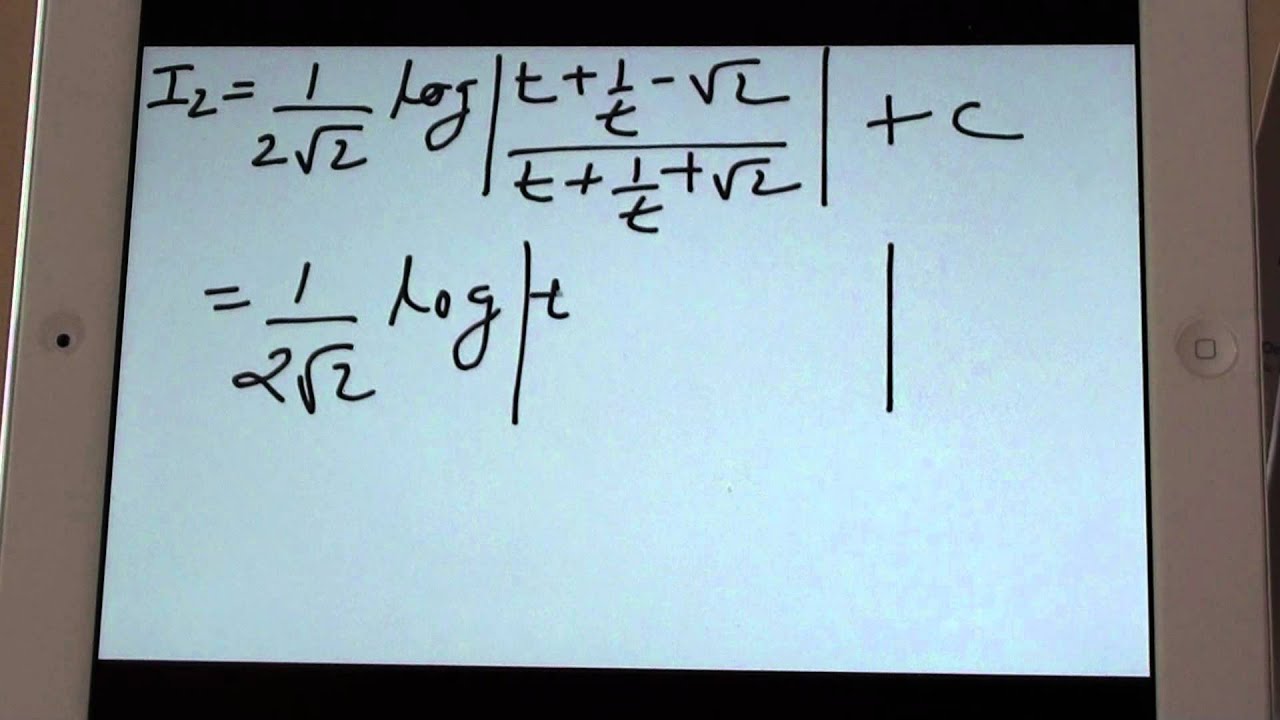 I₂ = 1/(2√2) log |(t + 1/t - √2)/(t + 1/t + √2)| + c
= 1/(2√2) log |t |